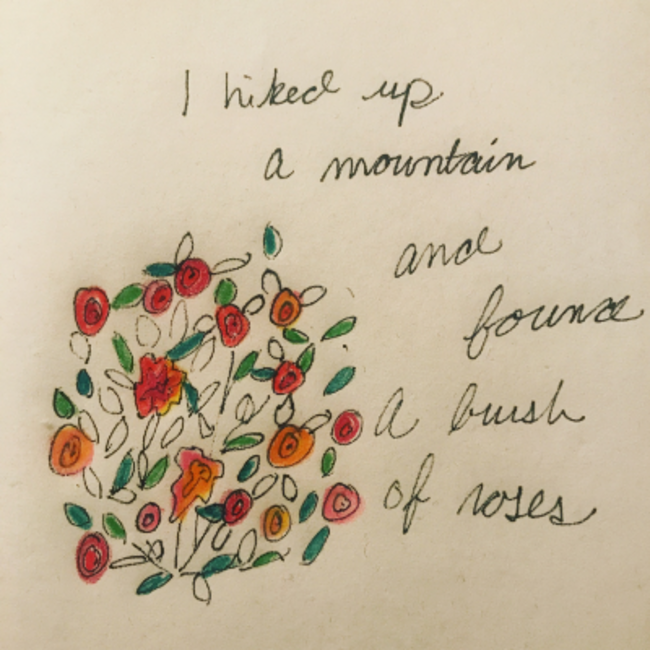 I hiked up
a mountain
and
found
a bush
of roses